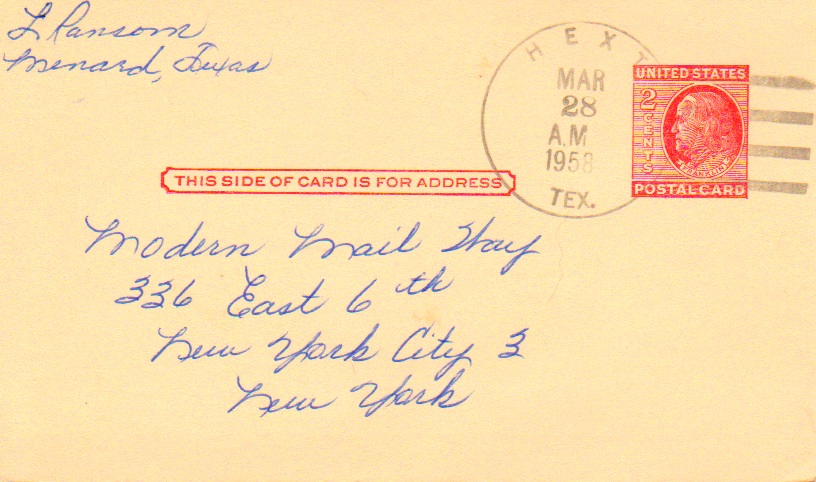 L Ransom
Menard, Texas
HEXT
MAR
28
A.M
1958
TEX.
UNITED STATES
2 CENTS
FRANKLIN
POSTAL CARD
THIS SIDE OF CARD IS FOR ADDRESS
Modern Mail Way
336 East 6th
New York City 3
New York